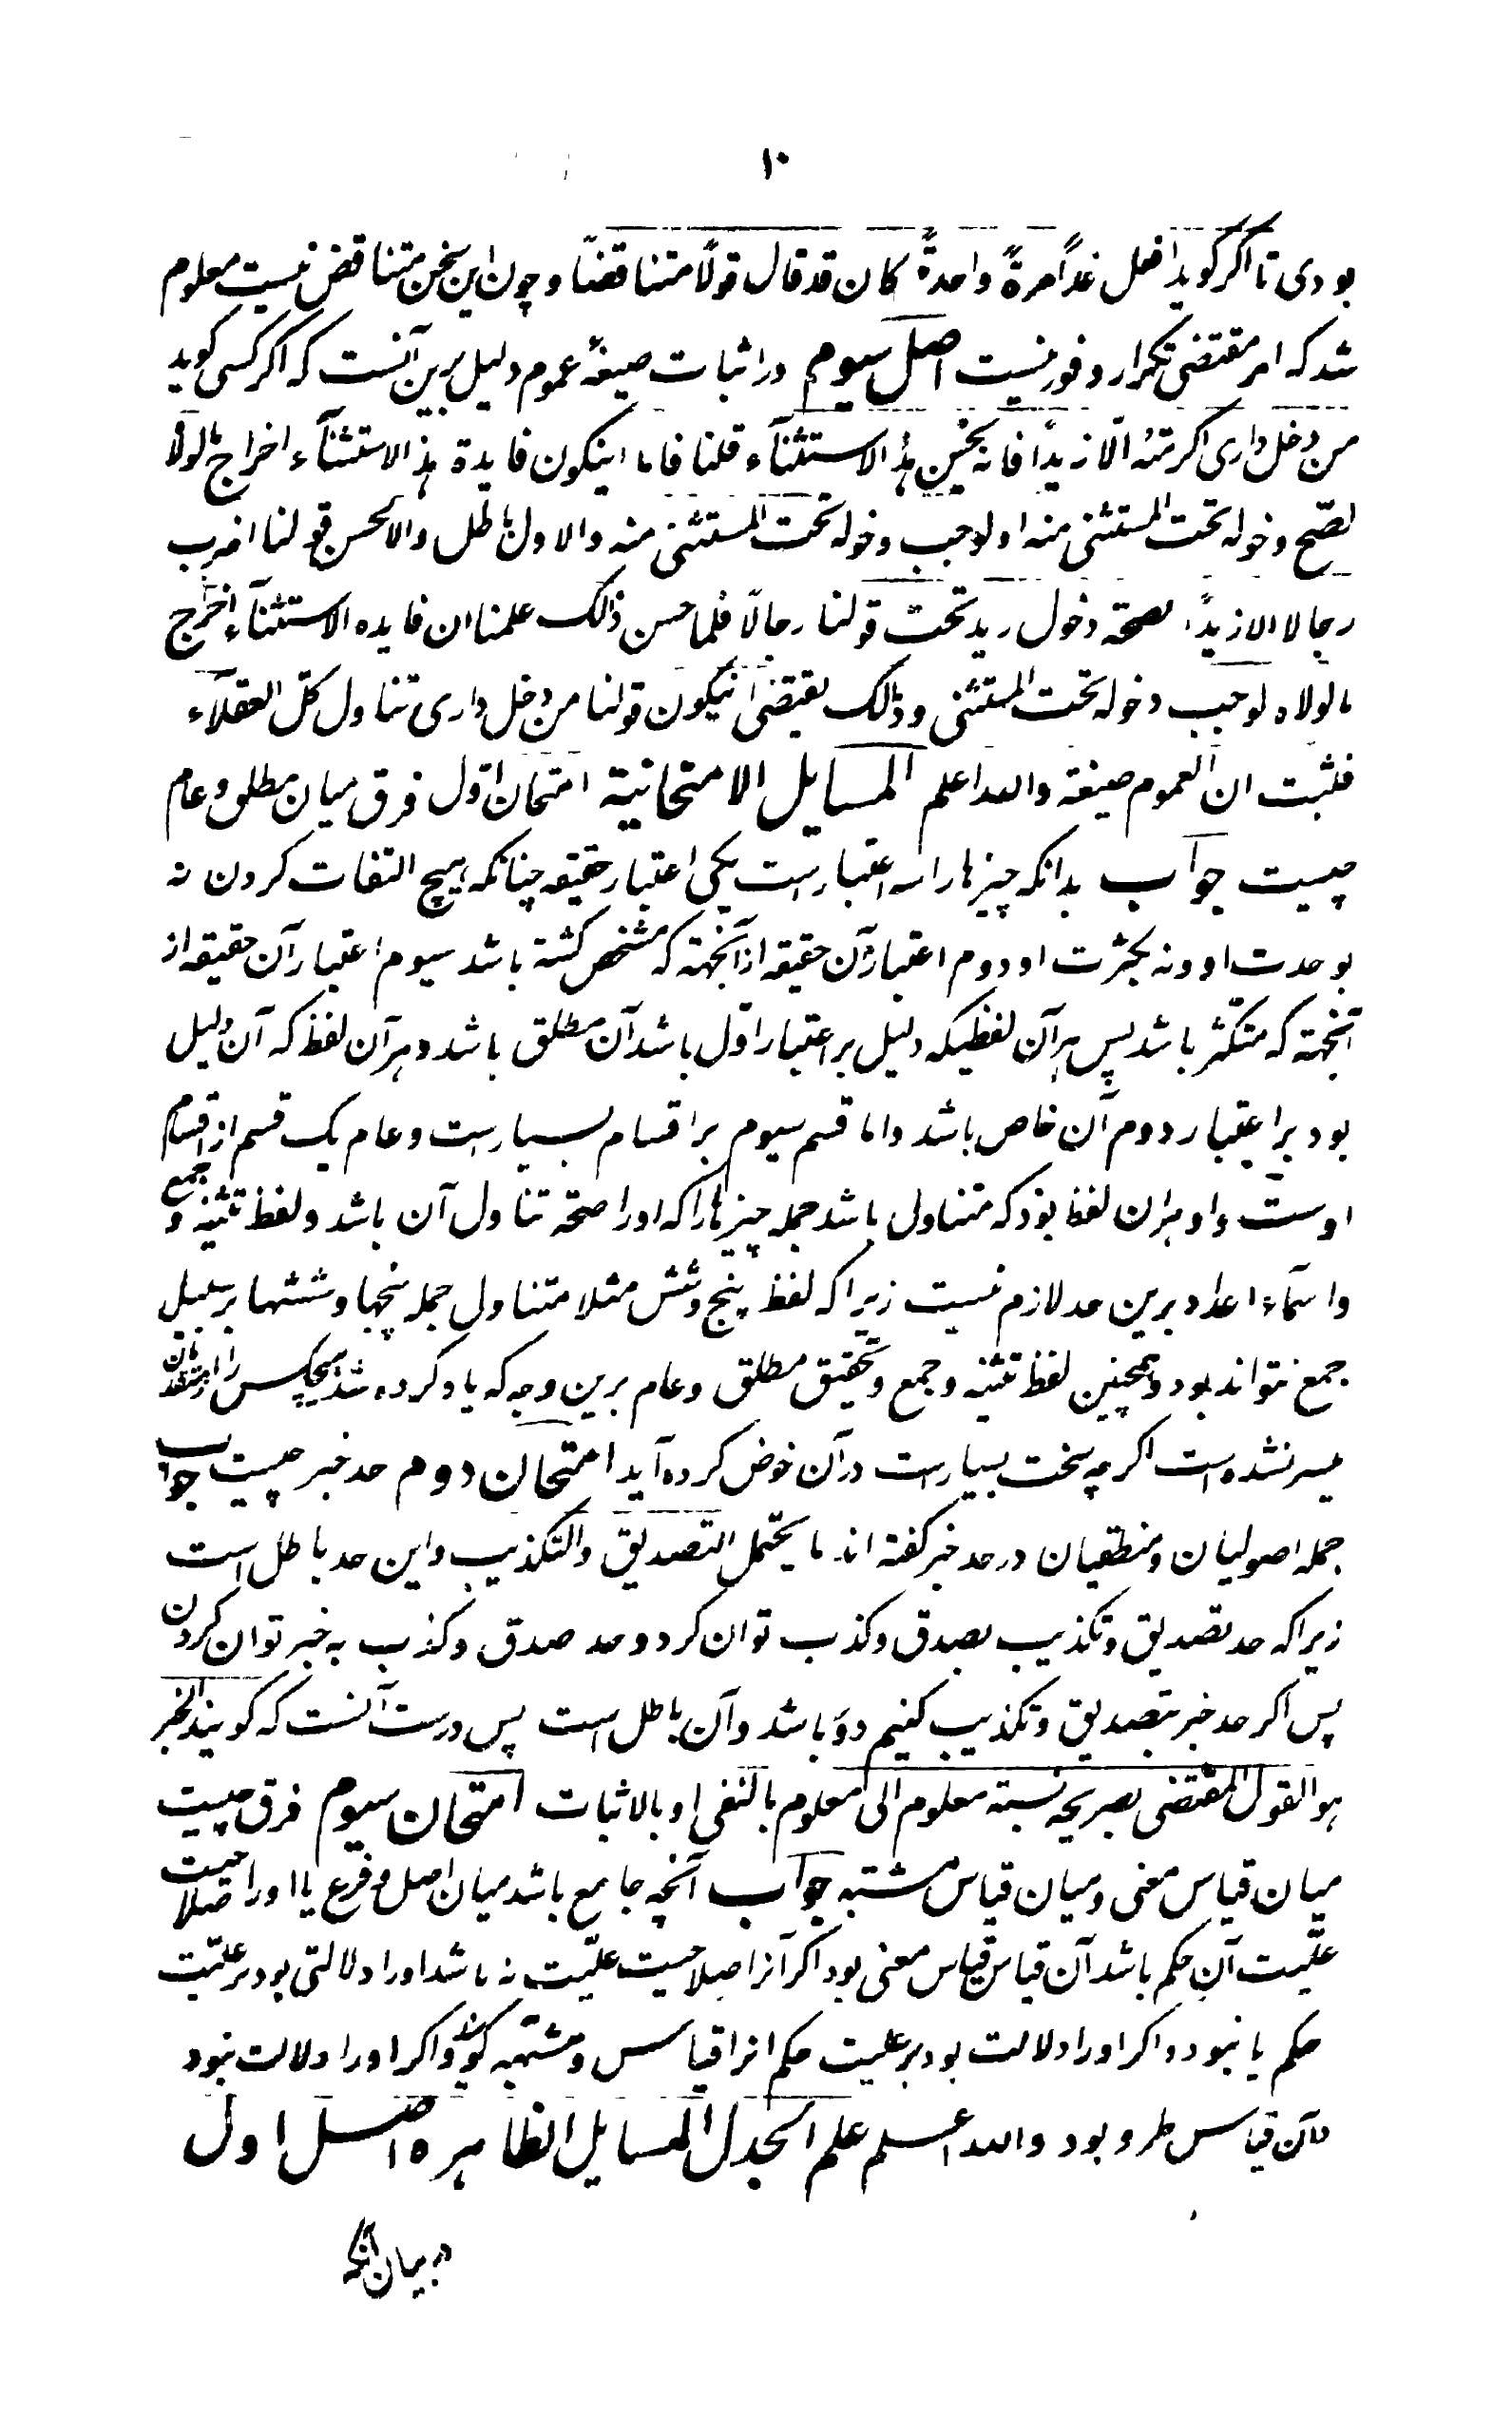 ۱۰
بودی تا اکر کوید افعل غداً مرةً واحدةً کان قد قال قولاً متناقضاً و چون این سخن متناقض نیست معلوم
شد که امر مقتضی تکرار و فور نیست اصل سیوم در اثبات صیغهٔ عموم دلیل برین آنست که اکر کسی کوید
من دخل داری اکرمته الّا زیداً فانه یحسن هذا الاستثنآء قلنا فاما اینکون فایدة هذا الاستثنآء اخراج ما لولاه
لصّح دخوله تحت المستثنی منه او لوجب دخوله تحت المستثنی منه والاول باطل والا لحسن قولنا اضرب
رجالا الا زیداً لصحة دخول زید تحت قولنا رجالاً فلما حسن ذالک علمنا ان فایده الاستثنآء اخراج
ما لولاه لوجب دخوله تحت المستثنی وذلک یقیتضی انیکون قولنا من دخل داری تناول کل العقلآء
فثبت ان العموم صیغة والله اعلم المسایل الامتحانیة امتحان اوّل فرق میان مطلق و عام
چیست جوآب بدانکه چیزها را سه اعتبارست یکی اعتبار حقیقه چنانکه هیچ التفات کردن نه
بوحدت او ونه بکثرت او دوم اعتبار آن حقیقه از آنجهته که مشخص کشته باشد سیوم اعتبار آن حقیقه از
آنجهته که متکثر باشد پس هرآن لفظیکه دلیل بر اعتبار اوّل باشد آن مطلق باشد و هرآن لفظ که آن دلیل
بود بر اعتبار دوم آن خاص باشد واما قسم سیوم بر اقسام بسیارست و عام یک قسم از اقسام
اوست واو هران لفظ بود که متناول باشد جمله چیزها را که اورا صحة تناول آن باشد ولفظ تثنیه و جمع
واسمآء اعداد برین حد لازم نیست زیراکه لفظ پنج و شش مثلا متناول جمله پنجها و ششها بر سبیل
جمع نتواند بود و همچنین لفظ تثنیه و جمع و تحقیق مطلق و عام برین وجه که یاد کرده شد هیچکس را از
میسر نشده است اکرچه سخت بسیارست در آن خوض کرده آید امتحان دوم حد خبر چیست جواب
جمله اصولیان و منطقیان در حد خبر کفته اند ما یحتمل التصدیق والتکذیب واین حد باطل است
زیراکه حد تصدیق و تکذیب بصدق و کذب توان کرد و حد صدق و کذب به خبر توان کردن
پس اکر حد خبر بتصدیق و تکذیب کنیم دور باشد وآن باطل است پس درست آنست که کویند الخبر
هو القول المقتضی بصریحه نسبته معلوم الی معلوم بالنفی او بالاثبات امتحان سیوم فرق چیست
میان قیاس معنی و میان قیاس مشتبه جوآب آنچه جامع باشد میان اصل و فرع یا اورا صلاحیت
علّیت آن حکم باشد آن قیاس قیاس معنی بود اکر آنرا صلاحیت علیّت نه باشد اورا دلالتی بود بر علیّت
حکم یا نبود واکر اورا دلالت بود بر علیت حکم انرا قیاس و مشتبه کویند واکر اورا دلالت نبود
آن قیاس طرد بود والله اعلم علم الجدل المسایل الظاهره اصل اول
در بیان آنکه